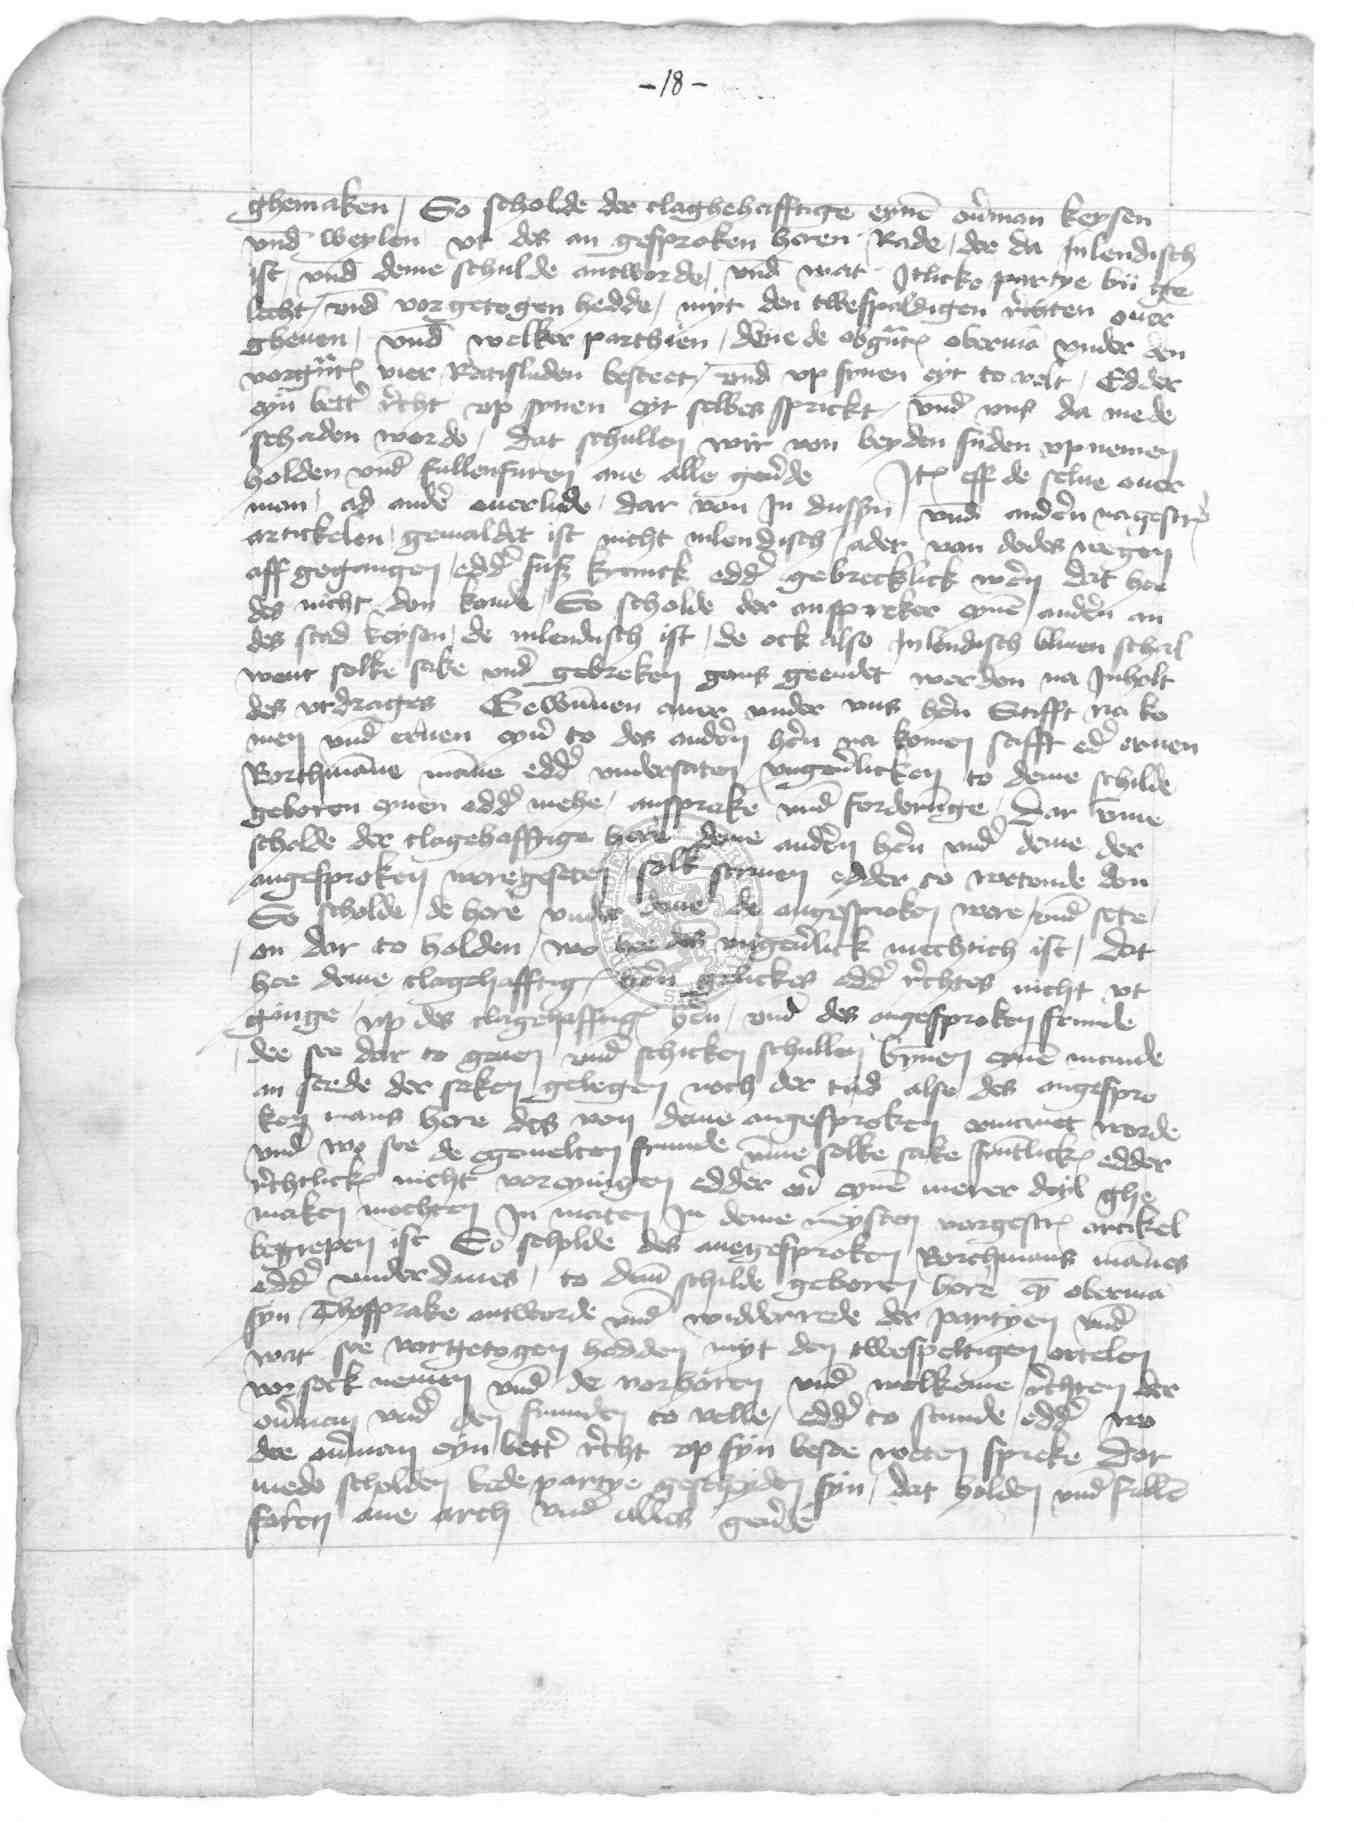 -18-
ghemaken / So scholde der claghehafftige eynē ov̄man keysen
vnd weylen vt des an gesproken heren Rade / der da Inlendisch
ist / vnd deme schulde antworde / vnd wat Itlicke partye bii ge
lecht / vnd vorgetogen hedde / myt den twespaldigen rechten ouer
gheuen / vnd welker parthien / deme de obgn̄t oberman vnder den
vorgn̄t vier Ratisluden besteet / vnd vp synen eyt to velt / Edder
eyn bett' r'cht vp synen eyt selbes sprickt / vnd vns da mede
scheden worde / dat schullen wir von beyden siiden vpnemen
holden vnd fullenfuren ane alle gev'de It' eff de selue ouer
man / ad ander ouerlude / dar von In dussen vnd andern nagescr'
artickelen gemaldet ist nicht inlendisch ader van dodes wegen
aff gegangen / edd' suss kranck edd' gebrecklick wern dat hee
des nicht don konde / So scholde der anspreker eynē andern an
des stad keysen / de inlendisch ist / de ock also Inlendisch bliuen schal
went solke sake vnd gebreken gans geendet werden na Inholt
des vtdrages Gewūnen auer vnder vns hern Stifft na ko
men vnd eruen eyn to des andern hern na komen stifft ed' eruen
Borchmāne māne edd' vndersaten vngeu'licken to deme schilde
geboren eynen edd' mehe / ansprake vnd forderunge / Dar vmme
scholde der clagehafftige here deme andern hern vnd deme der
angesproken were geseten solk scriuen edder to wetende don
So scholde / de here vnder deme de angesproken were / vnd sete /
on dar to holden / wo hee des vngeu'lick mechtich ist / dat
hee deme clagehafftig' hern gelickes edd' r'chtes nicht vt
ginge / vp des clagehafftig' hern / vnd des angesproken frunde
dee see dar to geuen vnd schicken schullen bynnen eynē mande
an stede der saken gelegen noch der tiid alse des angespro
ken mans here des von deme angesproken ermanet worde
vnd wo see de gemelten frunde vmme solke sake fruntlick' edder
r'chtlick' nicht voreynigen edder on eynē merer deyl ghe
maken mochten In maten In deme neysten vorgescr' artikel
begrepen ist So scholde des anegesproken Borchmans mānes
edd' vnderdanes / to dem schilde geboren here eyn obermā
syn Thosprake antworde vnd widderrede der partyen vnd
wat see vortgetogen hedden myt den twespeltigen ortelen
vor seck nemen vnd de vorhoren vnd welkeme r'chten der
ov̄man vnd den frunden to velle / edd' to stunde / edd' wo
dee ov̄man eyn bett' r'cht vp syn beste weten spreke Dar
mede scholden bede partye gescheyden syn / dat holden vnd fullē
foren ane arch vnd alles geu'de